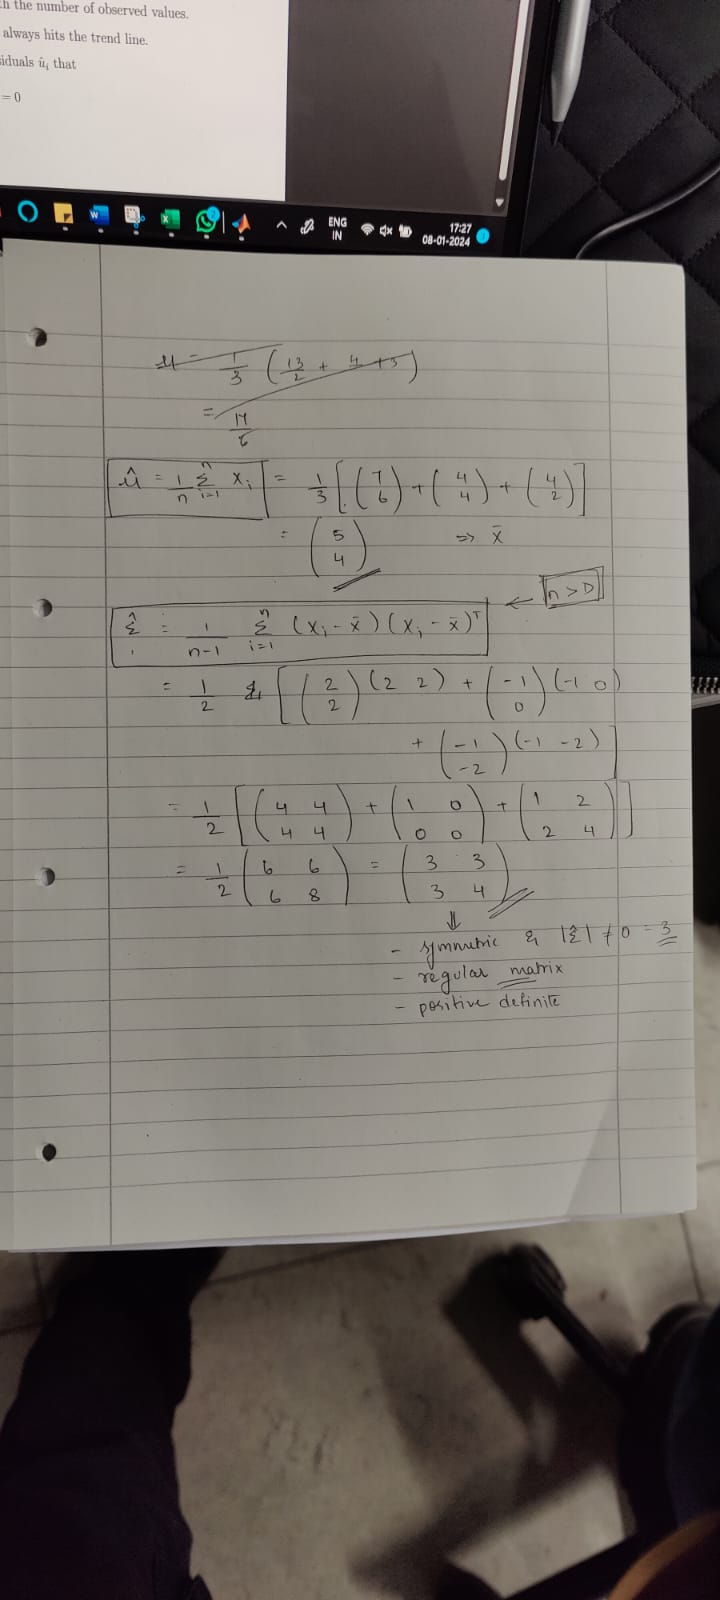 n the number of observed values.
always hits the trend line.
iduals ûᵢ that
= 0
ENG
IN
17:27
08-01-2024
μ = 1/3 (13/2 + 4 + 3)
= 17/6
μ̂ = 1/n Σ_{i=1}^{n} xᵢ = 1/3 [(7 6) + (4 4) + (4 2)]
= (5 4) => x̄
n > D
Σ̂ = 1/(n-1) Σ_{i=1}^{n} (xᵢ - x̄)(xᵢ - x̄)ᵀ ←
= 1/2 [(2 2)(2 2) + (-1 0)(-1 0)
+ (-1 -2)(-1 -2)]
= 1/2 [(4 4 4 4) + (1 0 0 0) + (1 2 2 4)]
= 1/2 (6 6 6 8) = (3 3 3 4)
⇓
- symmetric & |Σ̂| ≠ 0 = 3
- regular matrix
- positive definite